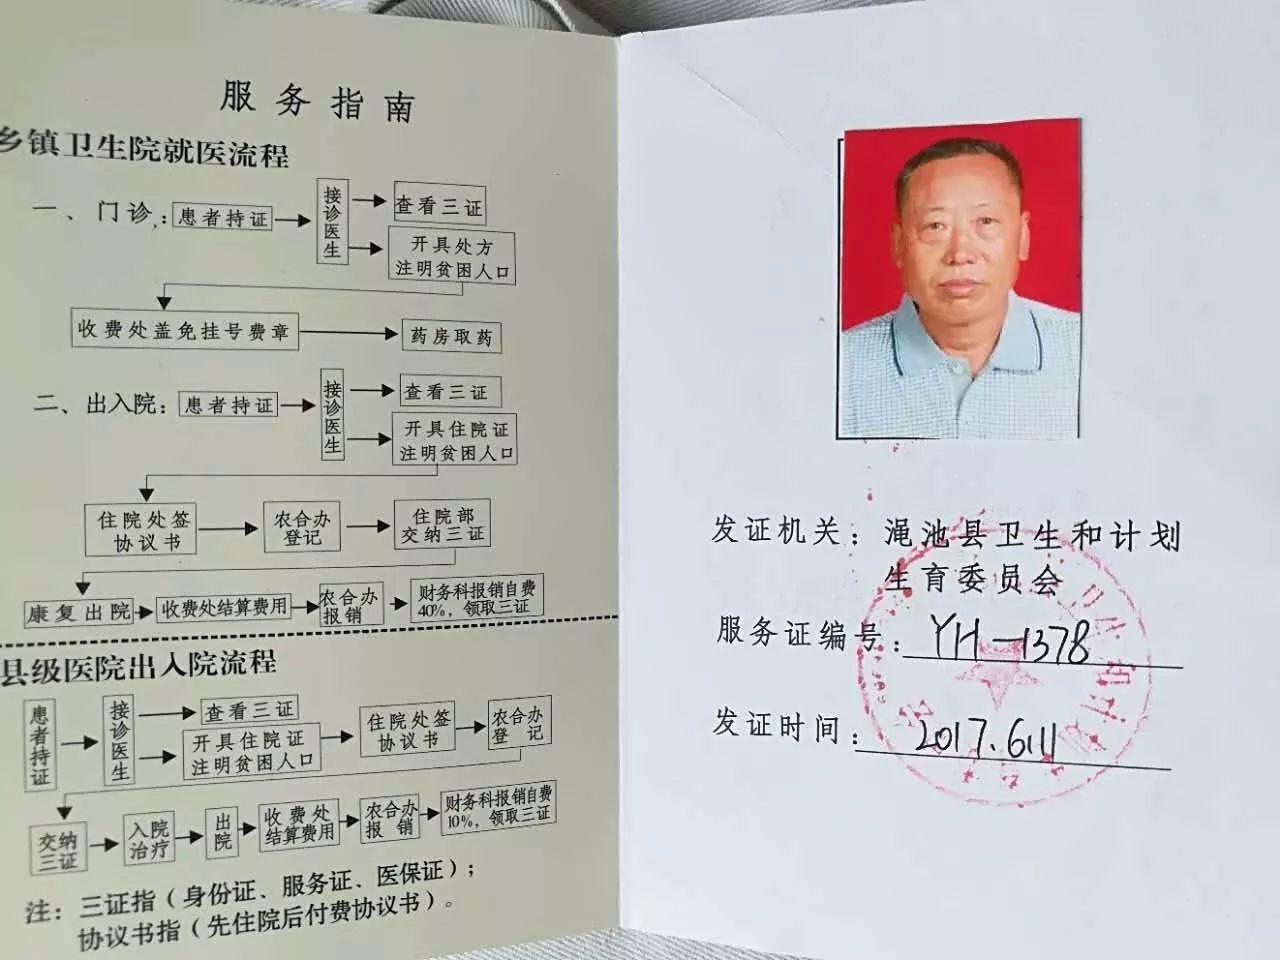 服务指南
乡镇卫生院就医流程
一、门诊:
患者持证
接诊医生
查看三证
开具处方
注明贫困人口
收费处盖免挂号费章
药房取药
二、出入院:
患者持证
接诊医生
查看三证
开具住院证
注明贫困人口
住院处签
协议书
农合办
登记
住院部
交纳三证
康复出院
收费处结算费用
农合办
报销
财务科报销自费
40%，领取三证
县级医院出入院流程
患者持证
接诊医生
查看三证
开具住院证
注明贫困人口
住院处签
协议书
农合办
登记
交纳
三证
入院
治疗
出院
收费处
结算费用
农合办
报销
财务科报销自费
10%，领取三证
注：三证指（身份证、服务证、医保证）；
协议书指（先住院后付费协议书）。
发证机关：渑池县卫生和计划
生育委员会
服务证编号：YH-1378
发证时间：2017.6.11